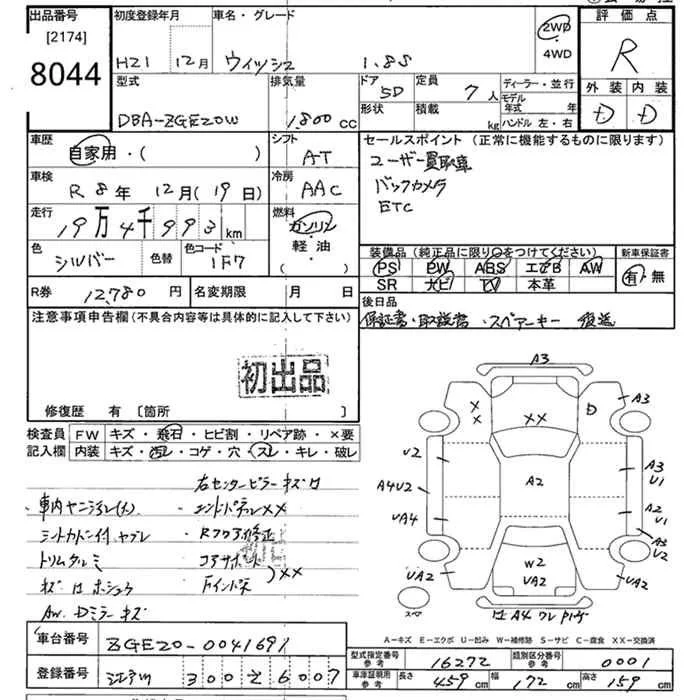 出品番号 初度登録年月 車名・グレード 評価点
[2174]
8044
H21 12月 ウィッシュ 1.8S
2WD
・
4WD
R
型式 排気量 ドア 定員 ディーラー・並行 外装 内装
DBA-ZGE20W 1,800 CC 5D 7人
モデル年式 年
形状 積載 kg ハンドル 左・右
D D
車歴 シフト セールスポイント(正常に機能するものに限ります)
自家用・( ) AT
ユーザー買取車
車検 冷房
R 8年 12月(19日) AAC
バックカメラ
ETC
走行 燃料
19万4千993km ガソリン
・
軽油
( )
色 シルバー 色替 色コード 1F7
装備品(純正品に限り○をつけてください) 新車保証書
PS PW ABS エアB AW
SR ナビ TV 本革
有・無
R券 12,780円 名変期限 月 日
後日品
保証書・取説書・スペアーキー 後送
注意事項申告欄(不具合内容等は具体的に記入して下さい)
初出品
修復歴 有 [箇所 ]
検査員 FW キズ・飛石・ヒビ割・リペア跡・×要
記入欄 内装 キズ・汚レ・コゲ・穴・スレ・キレ・破レ
右センターピラー キズ
・車内ヤニ汚レ(大)
・シートカドン付、ヤブレ
・トリムクルミ
・Rフロア修正
コアサポート
Fインパネ
)××
AW. Dミラーキズ
A3
A3
×
×
××
D
U2
A3
U1
A4U2
A2
A2
U1
UA4
A3
U2
UA2
W2
UA2
UA2
スペア
A4 ワレ
A-キズ E-エクボ U-凹み W-補修跡 S-サビ C-腐食 XX-交換済
車台番号 ZGE20-0041691
型式指定番号 参考 16272 類別区分番号 参考 0001
登録番号 300 6007
車庫証明用 参考 長さ 459cm 幅 172cm 高さ 159cm